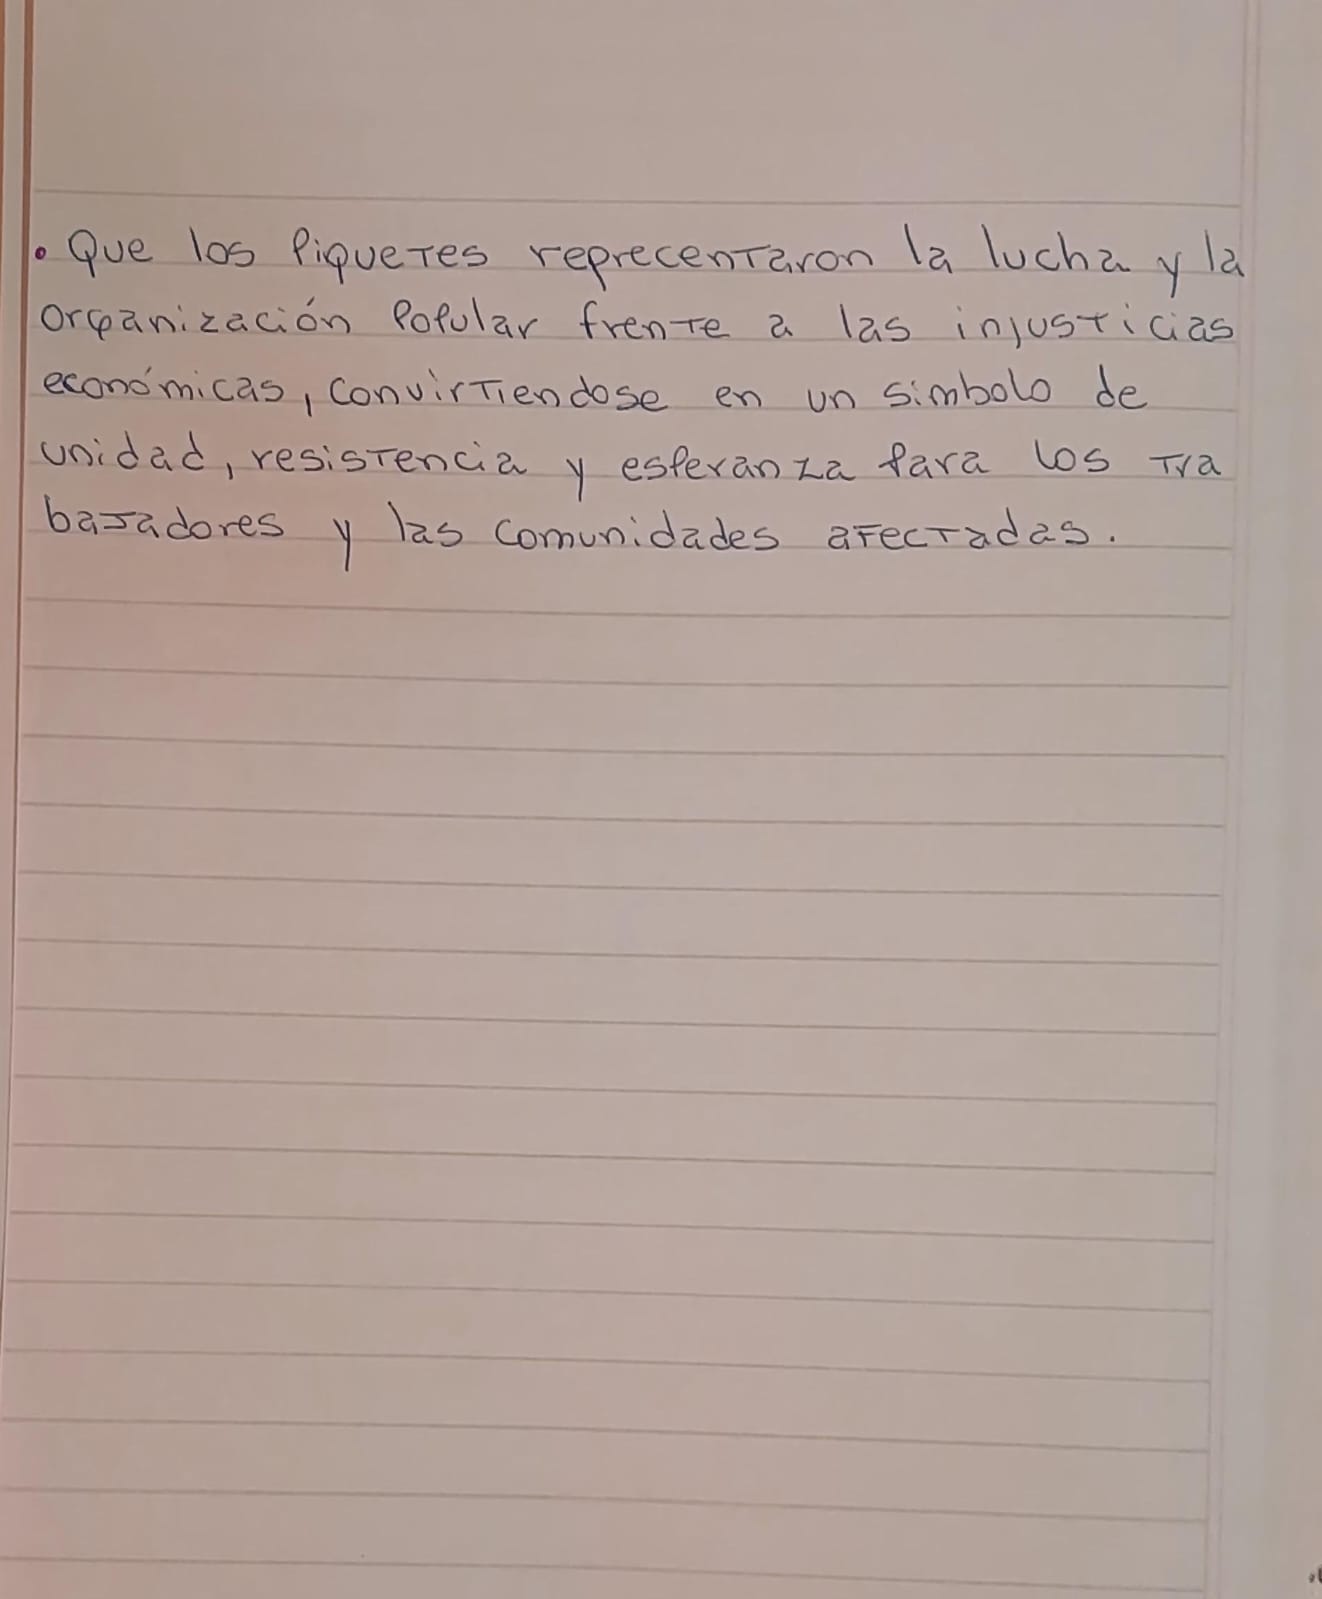 • Que los Piquetes reprecentaron la lucha y la
organización Popular frente a las injusticias
económicas, convirtiendose en un simbolo de
unidad, resistencia y esperanza para los tra
bajadores y las comunidades afectadas.